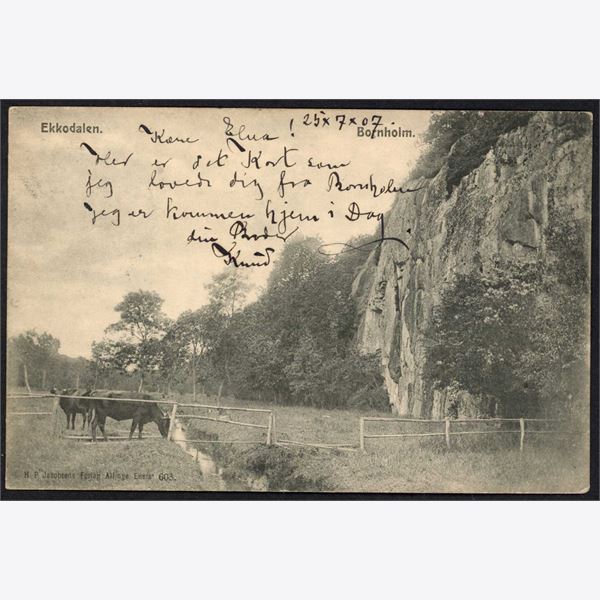 Ekkodalen.
Bornholm.
25 x 7 x 07
Kære Elna!
Her er det Kort som
jeg lovede dig fra Bornholm
jeg er kommen hjem i Dag
din Broder
Knud
H. P. Jacobsens Forlag Allinge Eneret 603.